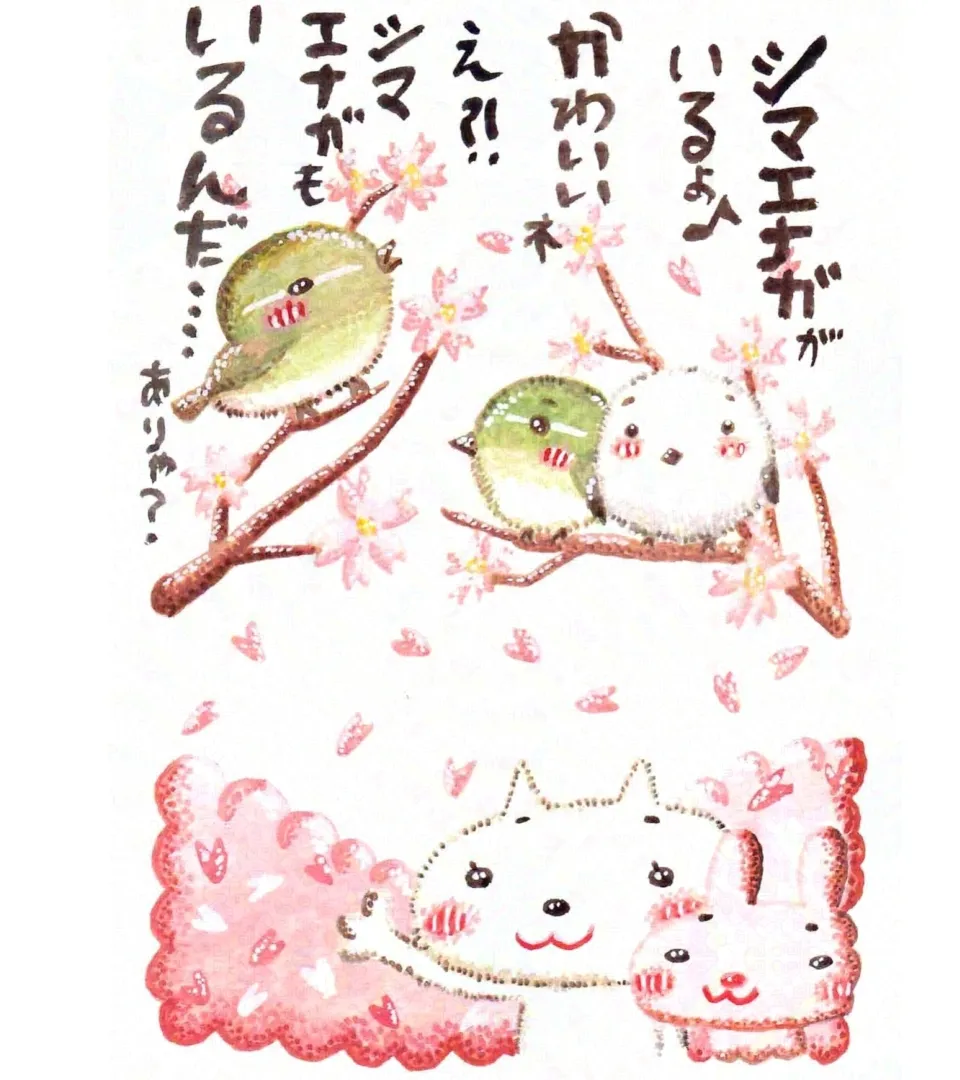 シマエナガが
いるよ♪
かわいいネ
え⁈
シマ
エナガも
いるんだ……
ありゃ?